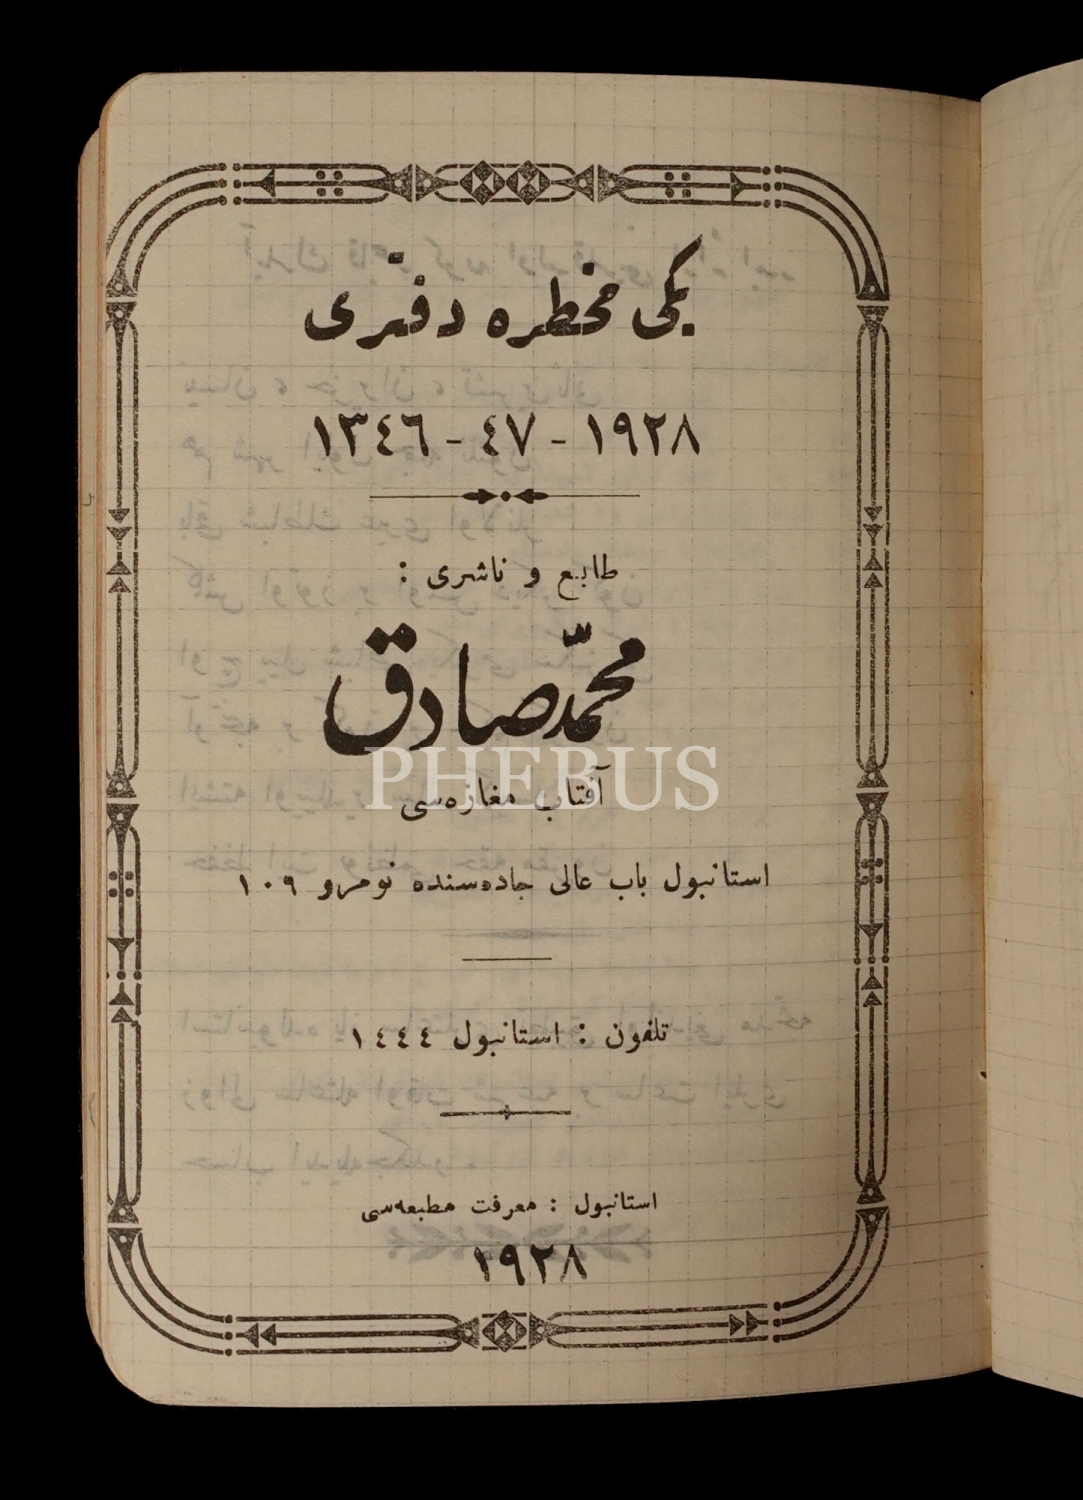 یکی مخطره دفتری
١٣٤٦ - ٤٧ - ١٩٢٨
طابع و ناشری :
محمّد صادق
PHEBUS
آفتاب مغازه‌سی
استانبول باب عالی جاده‌سنده نومرو ١٠٩
تلفون : استانبول ١٤٤٤
استانبول : معرفت مطبعه‌سی
١٩٢٨